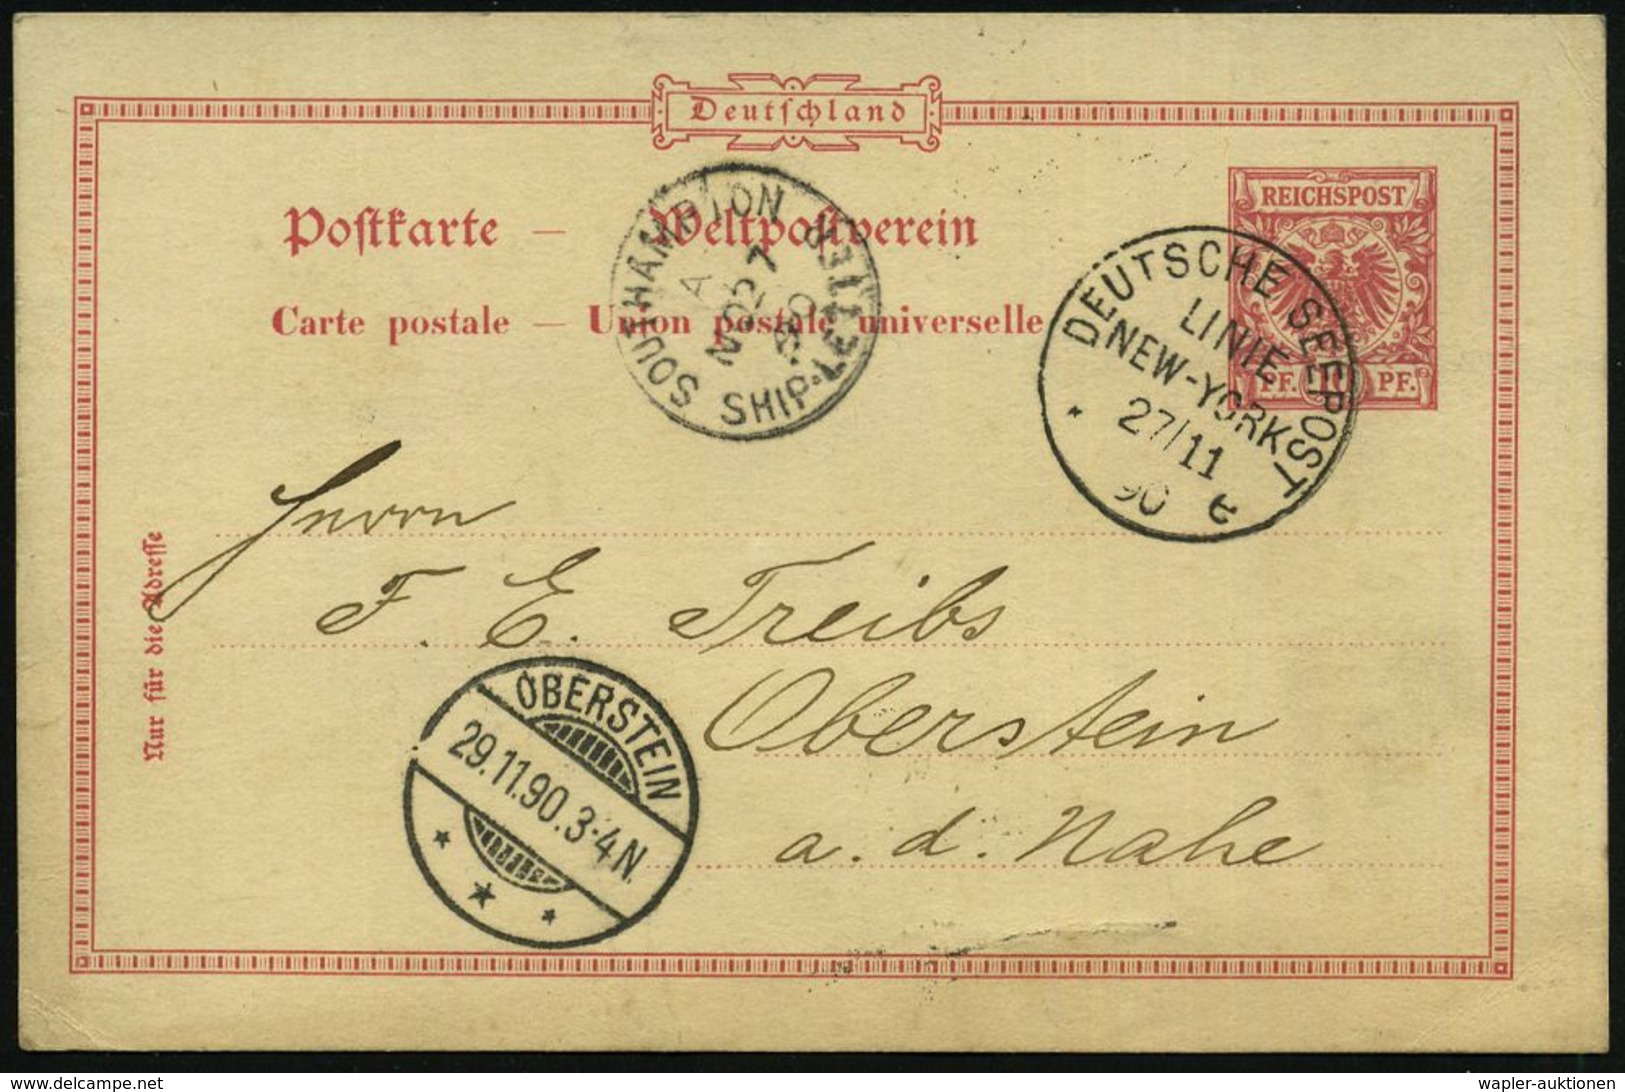 Deutschland
REICHSPOST
PF. 10 PF.
Postkarte — Weltpostverein
Carte postale — Union postale universelle
SOUTHAMPTON SHIP-LETTER
A
NO 27
90
DEUTSCHE SEEPOST
LINIE
NEW-YORK
27/11
90 e
Nur für die Adresse
Herrn
F. E. Treibs
Oberstein
a. d. Nahe
OBERSTEIN
29.11.90.3-4N.
© by ma-shops wapler-auktionen